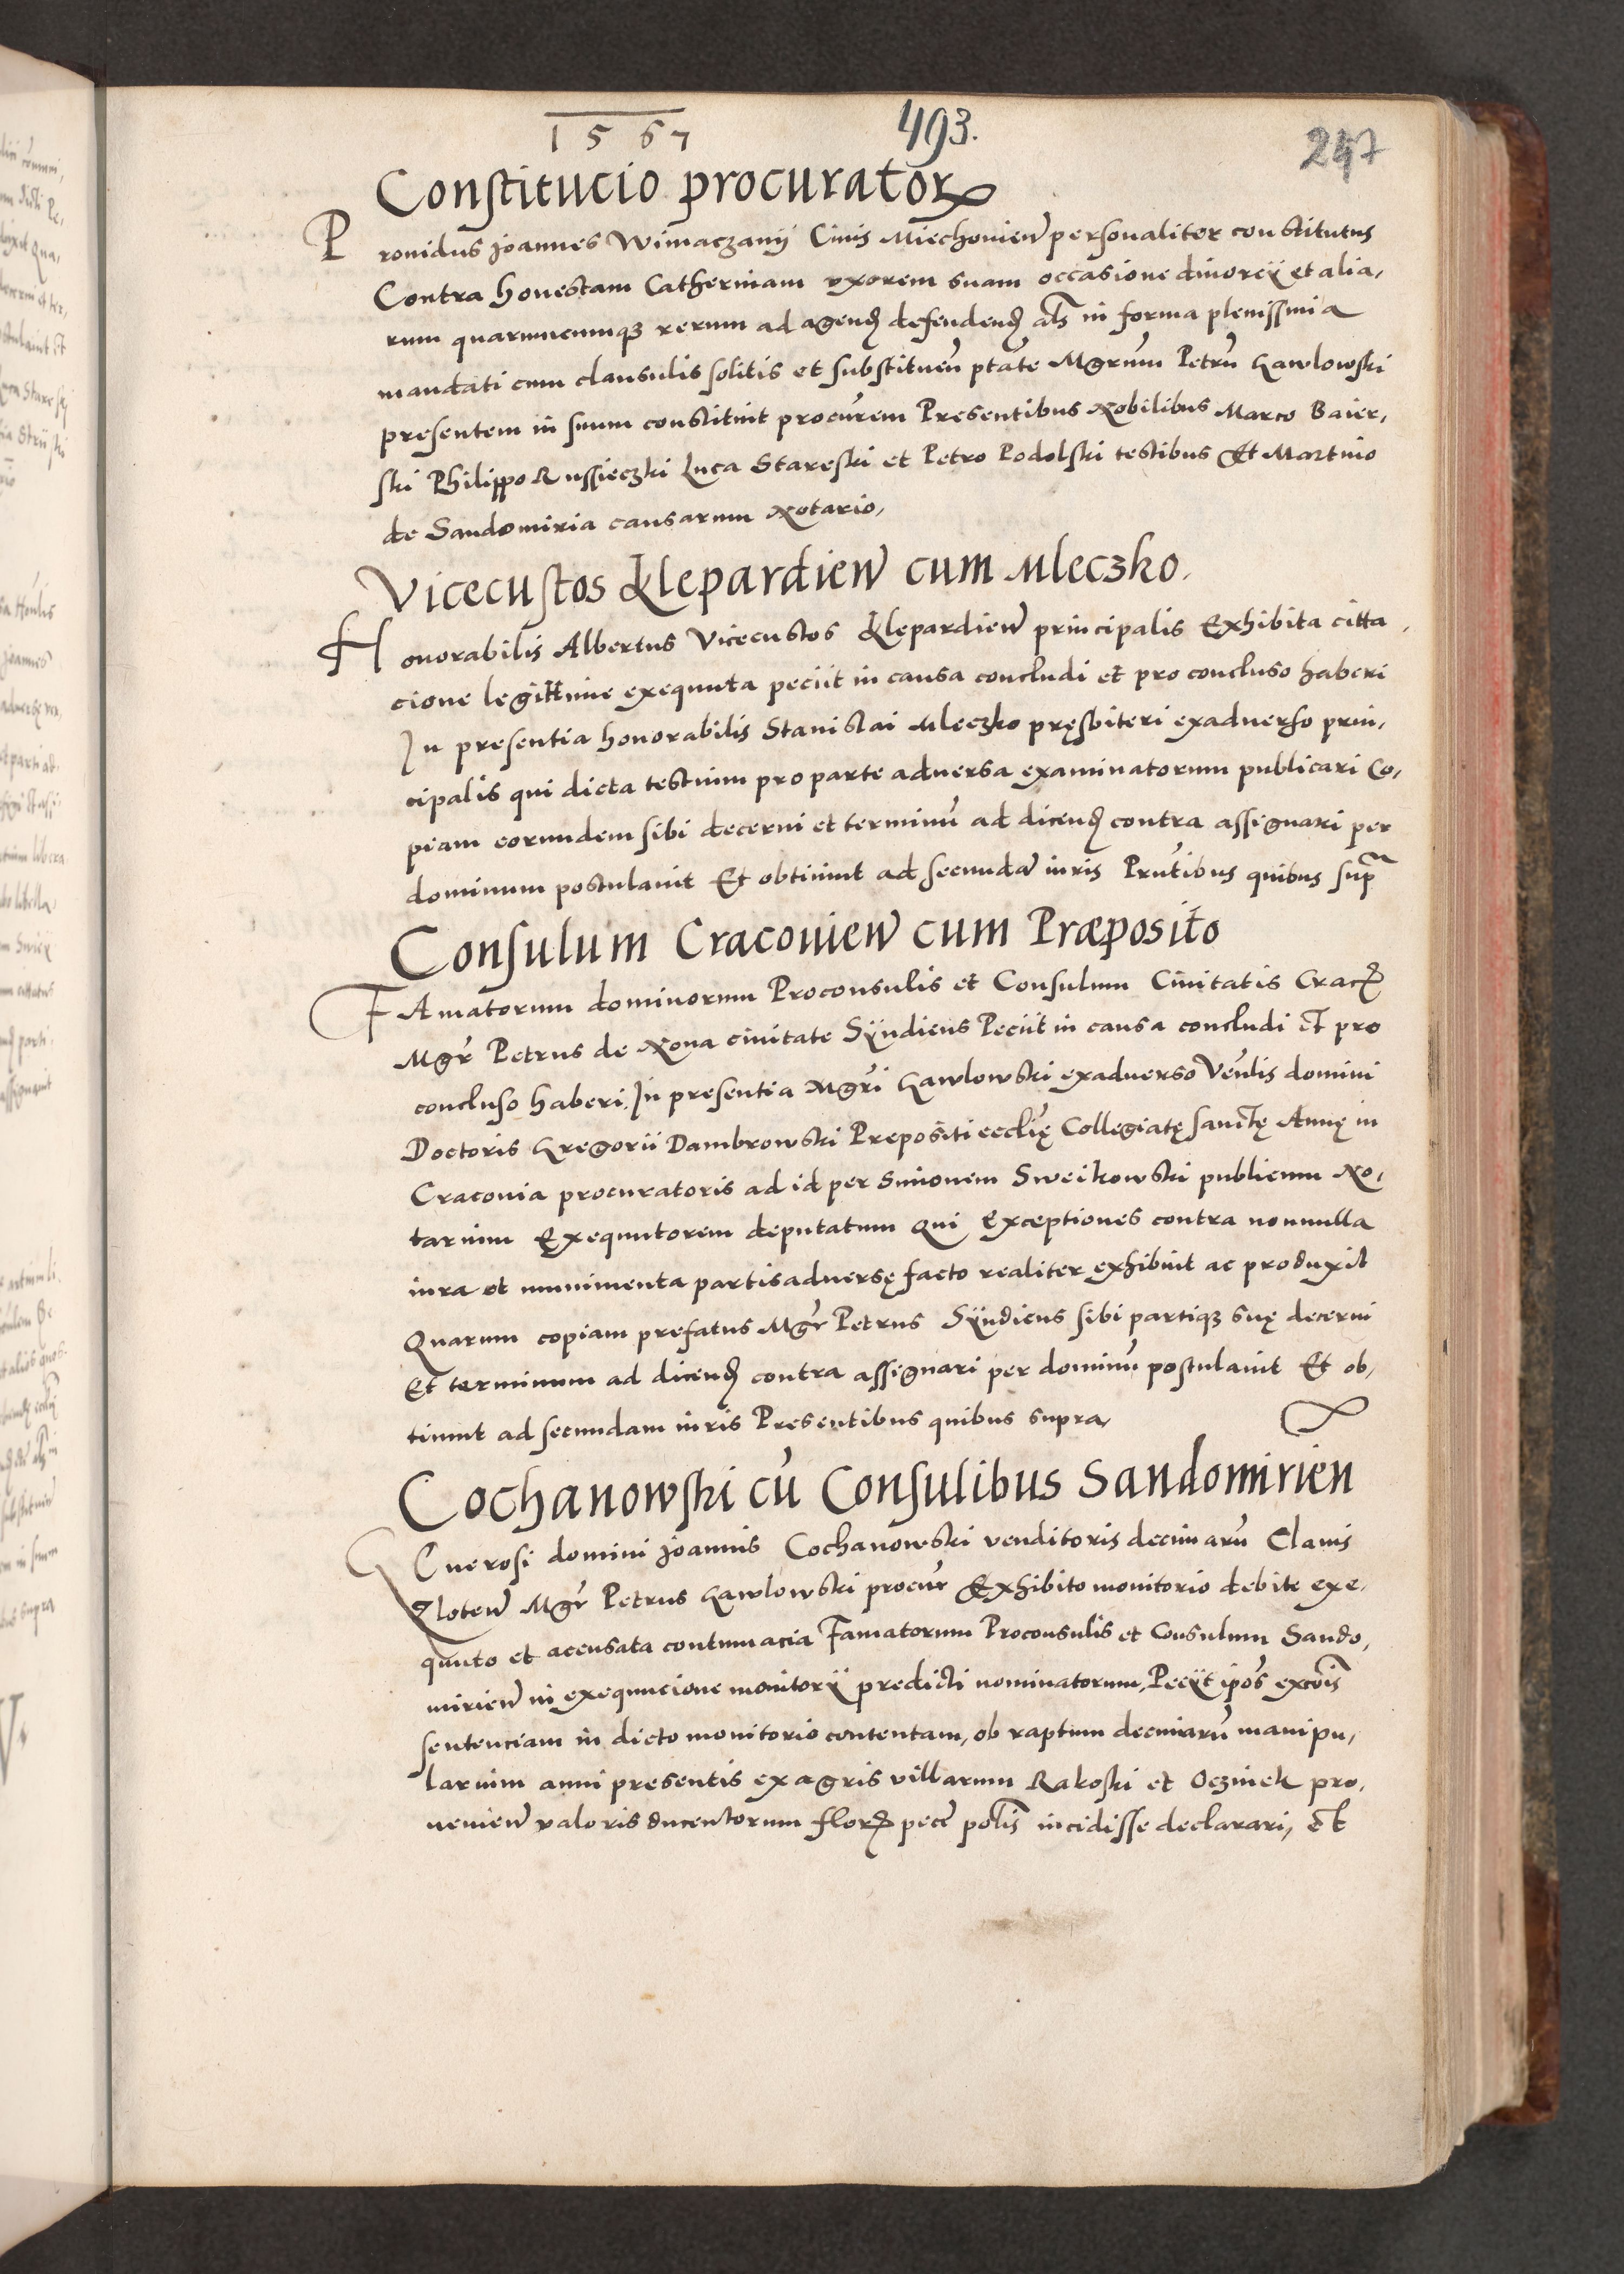 1567
493.
247
Constitucio procurator
Prouidus Joannes Wimaczanÿ Ciuis Miechouien personaliter constitutus
Contra honestam Catherinam vxorem suam occasione diuorcÿ et alia,
rum quarumcumqȝ rerum ad agend defendend als in forma plenissima
mandati cum clausulis solitis et substituen ptate Mgrum Petru Gawlowski
presentem in suum constituit procurem Presentibus Nobilibus Marco Baier,
ski Philippo Russieczki Luca Stareski et Petro Podolski testibus Et Martino
de Sandomiria causarum Notario,
Vicecustos Klepardien cum Mleczko.
Honorabilis Albertus Vicecustos Klepardien principalis Exhibita citta,
cione legittime exequuta peciit in causa concludi et pro concluso haberi
In presentia honorabilis Stanislai Mleczko pręsbiteri exaduerso prin,
cipalis qui dicta testium pro parte aduersa examinatorum publicari Co,
piam eorundem sibi decerni et terminu ad dicend contra assignari per
dominum postulauit Et obtinuit ad secunda iuris Prntibus quibus sup
Consulum Cracouien cum Præposito
FAmatorum dominorum Proconsulis et Consulum Ciuitatis Crac
Mgr Petrus de Noua ciuitate Sÿndicus Peciit in causa concludi et pro
concluso haberi. In presentia Mgri Gawlowski exaduerso Venlis domini
Doctoris Gregorii Dambrowski Prepositi ecclię Collegiatę sanctę Annę in
Cracouia procuratoris ad id per Simonem Sweikowski publicum No,
tarium Exequutorem deputatum Qui Exceptiones contra nonnulla
iura et munimenta partis aduersę facto realiter exhibuit ac produxit
Quarum copiam prefatus Mgr Petrus Sÿndicus sibi partiqȝ suę decerni
Et terminum ad dicend contra assignari per dominu postulauit Et ob,
tinuit ad secundam iuris Presentibus quibus supra,
Cochanowski cu Consulibus Sandomirien
Generosi domini Joannis Cochanowski venditoris decimaru Clauis
Zloten Mgr Petrus Gawlowski procur Exhibito monitorio debite exe,
quuto et accusata contumacia Famatorum Proconsulis et Consulum Sando,
mirien in exequucione monitorÿ predicti nominatorum, Pecÿt ipos excois
sentenciam in dicto monitorio contentam, ob raptum decimaru manipu,
larium anni presentis ex agris villarum Rakoski et Oczinek pro,
uenien valoris ducentorum flor pece polis incidisse declarari, et